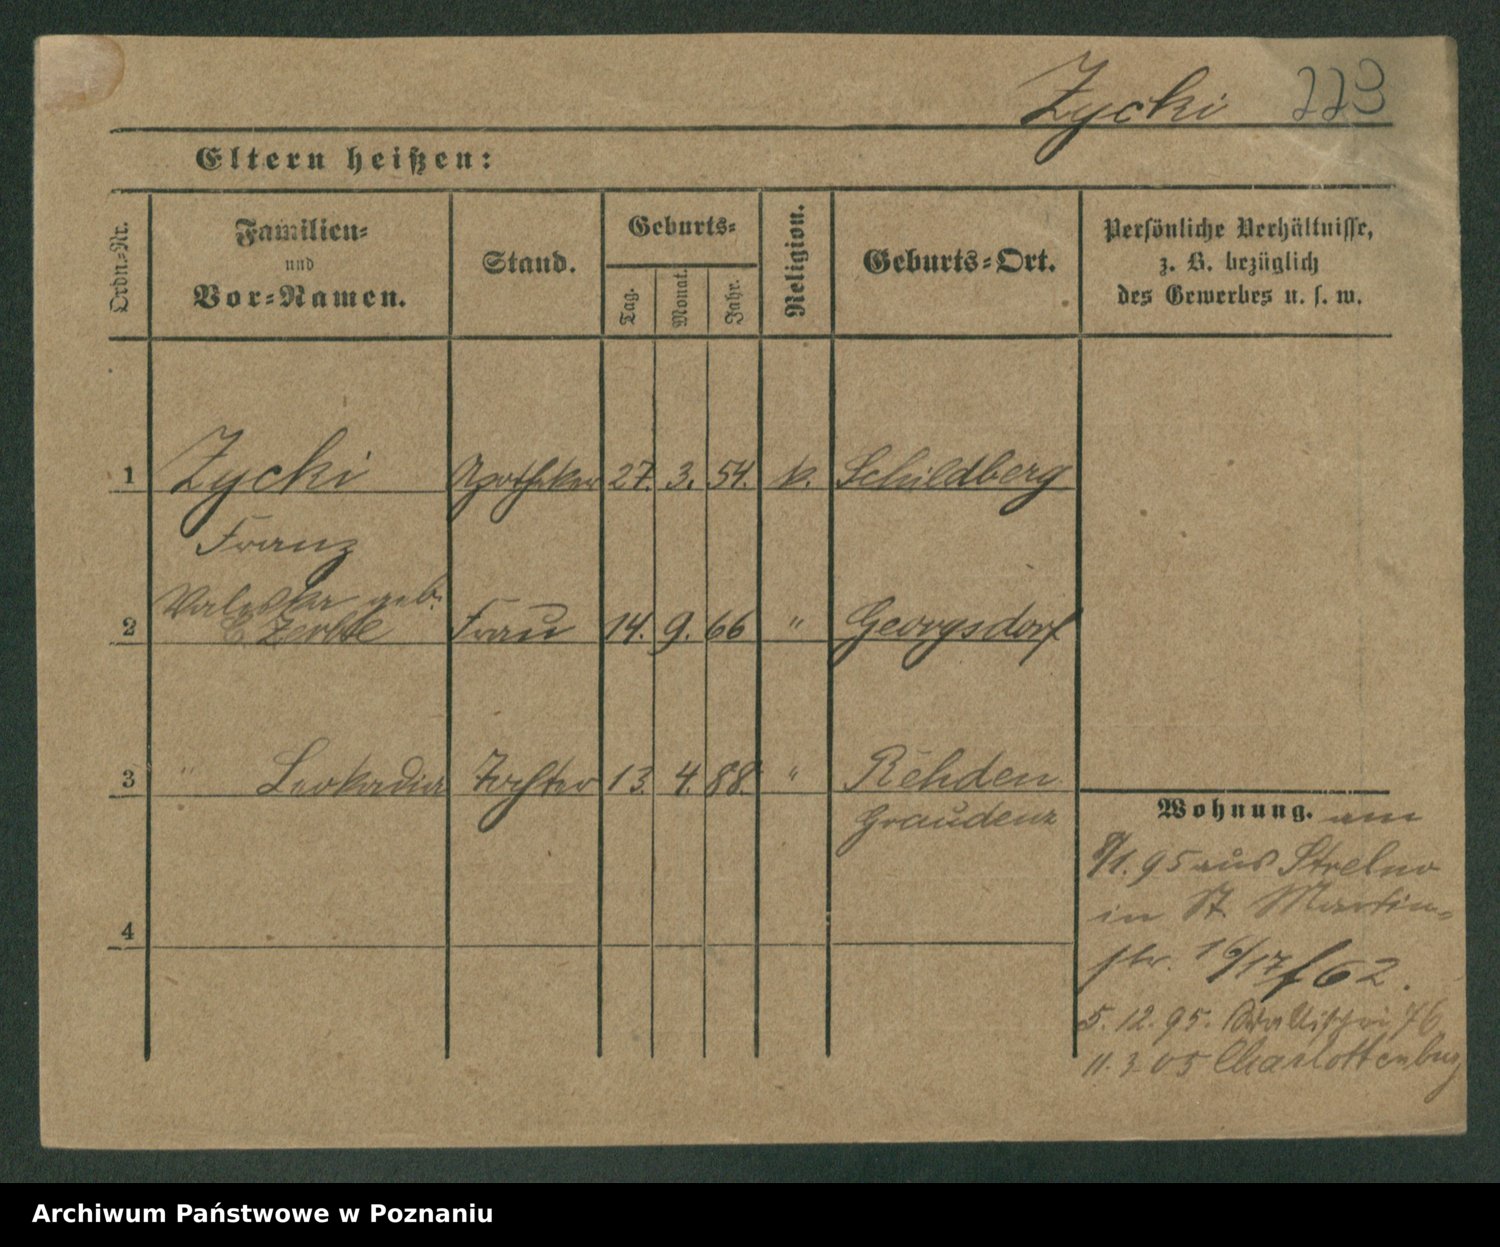 Zycki 223
Eltern heißen:
Ordn.-Nr.
Familien-
und
Vor-Namen.
Stand.
Geburts-
Tag.
Monat.
Jahr.
Religion.
Geburts-Ort.
Persönliche Verhältnisse,
z. B. bezüglich
des Gewerbes u. s. w.
1 Zycki Apotheker 27. 3. 54. k. Schildberg
Franz
Valeska geb.
2 Frau 14. 9. 66 " Georgsdorf
3 " Leokadia Tochter 13. 4. 88. " Rehden
Graudenz
4
Wohnung. am
8/1. 95 aus Strelno
in St. Martin-
str. 16/17 f 62.
5. 12. 95. Wallischei 76
11. 3 05 Charlottenburg
Archiwum Państwowe w Poznaniu